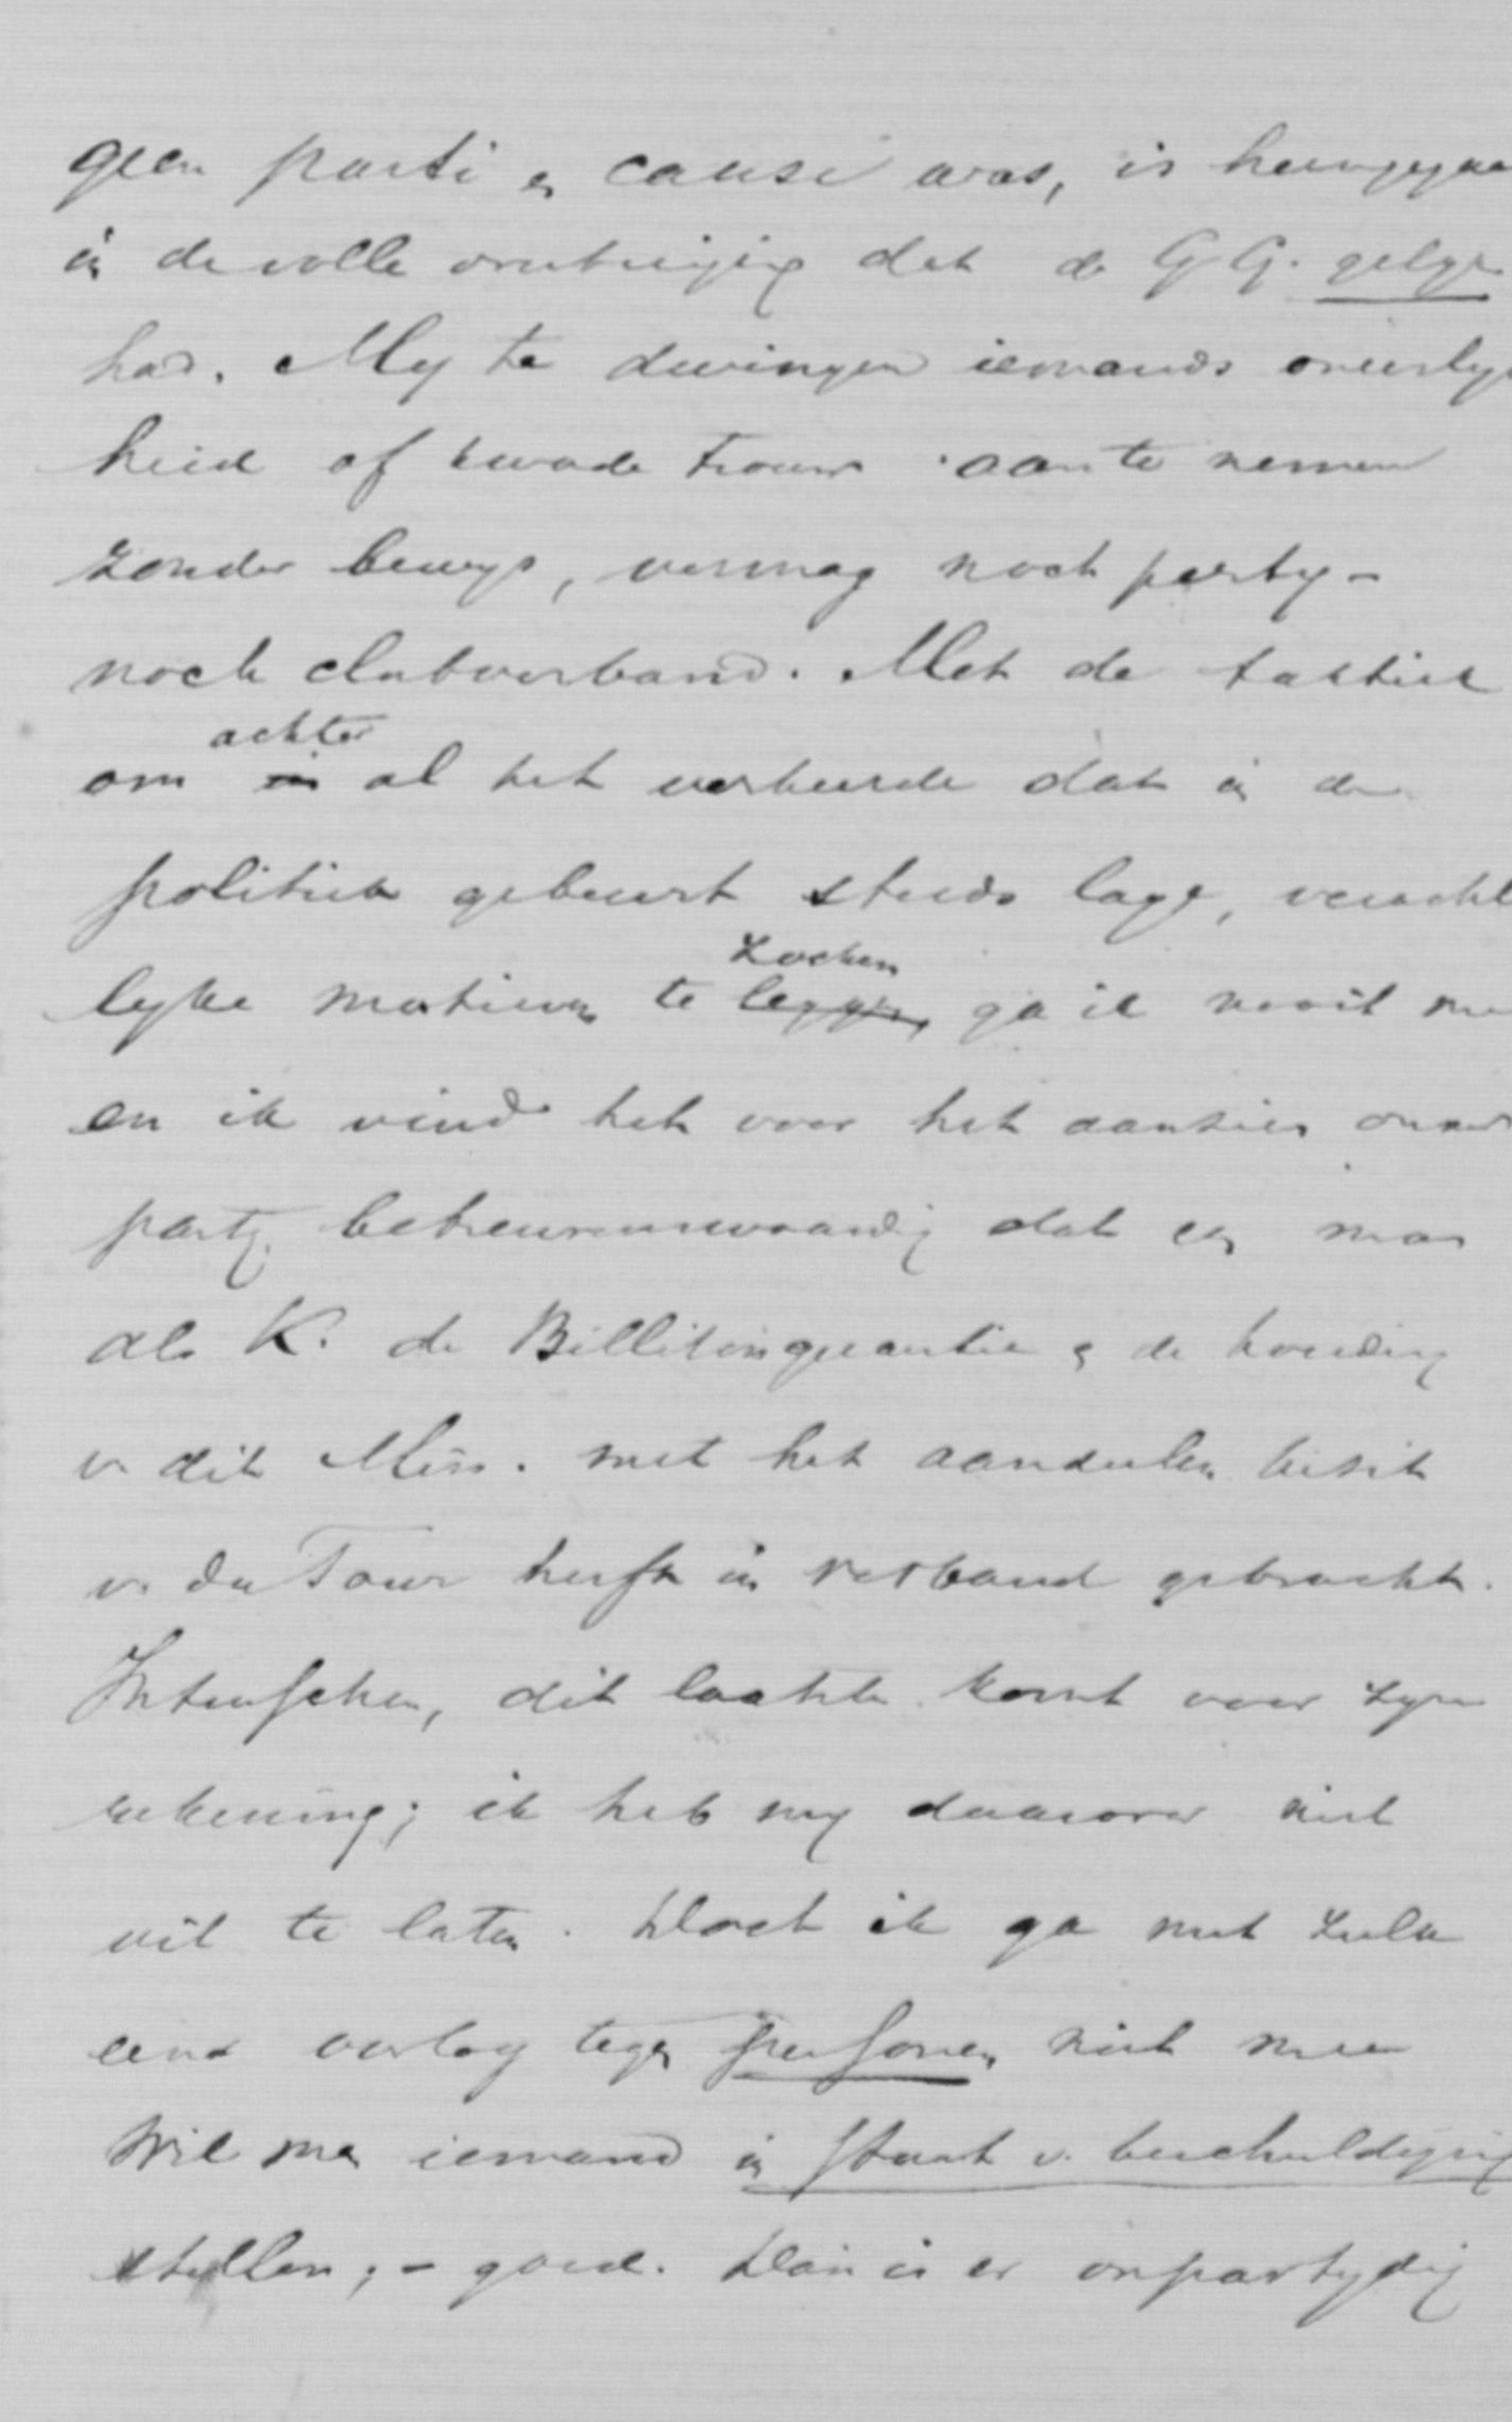 geen parti en cause was, is heengegaa
in de volle overtuiging dat de GG. gelyk
had. My te dwingen iemands oneerlyk
heid of kwade trouw aan te nemen
zonder bewys, vermag noch party-
noch clubverband. Met de taktiek
om achter in al het verkeerde dat in de
politiek gebeurt steeds lage, verachte
lyke motieven te zoeken leggen, ga ik nooit me
en ik vind het voor het aanzien onzer
party betreurenswaardig dat een man
als K. de Billitonquaestie & de houding
v. dit Min. met het aandeelen bezit
v. du Tour heeft in verband gebracht.
Intusschen, dit laatste komt voor zyn
rekening; ik heb my daarover niet
uit te laten. Doch ik ga met zulk
een oorlog tegen personen niet mee
Wil men iemand in staat v. beschuldiging
stellen; - goed. Dan is er onpartydig